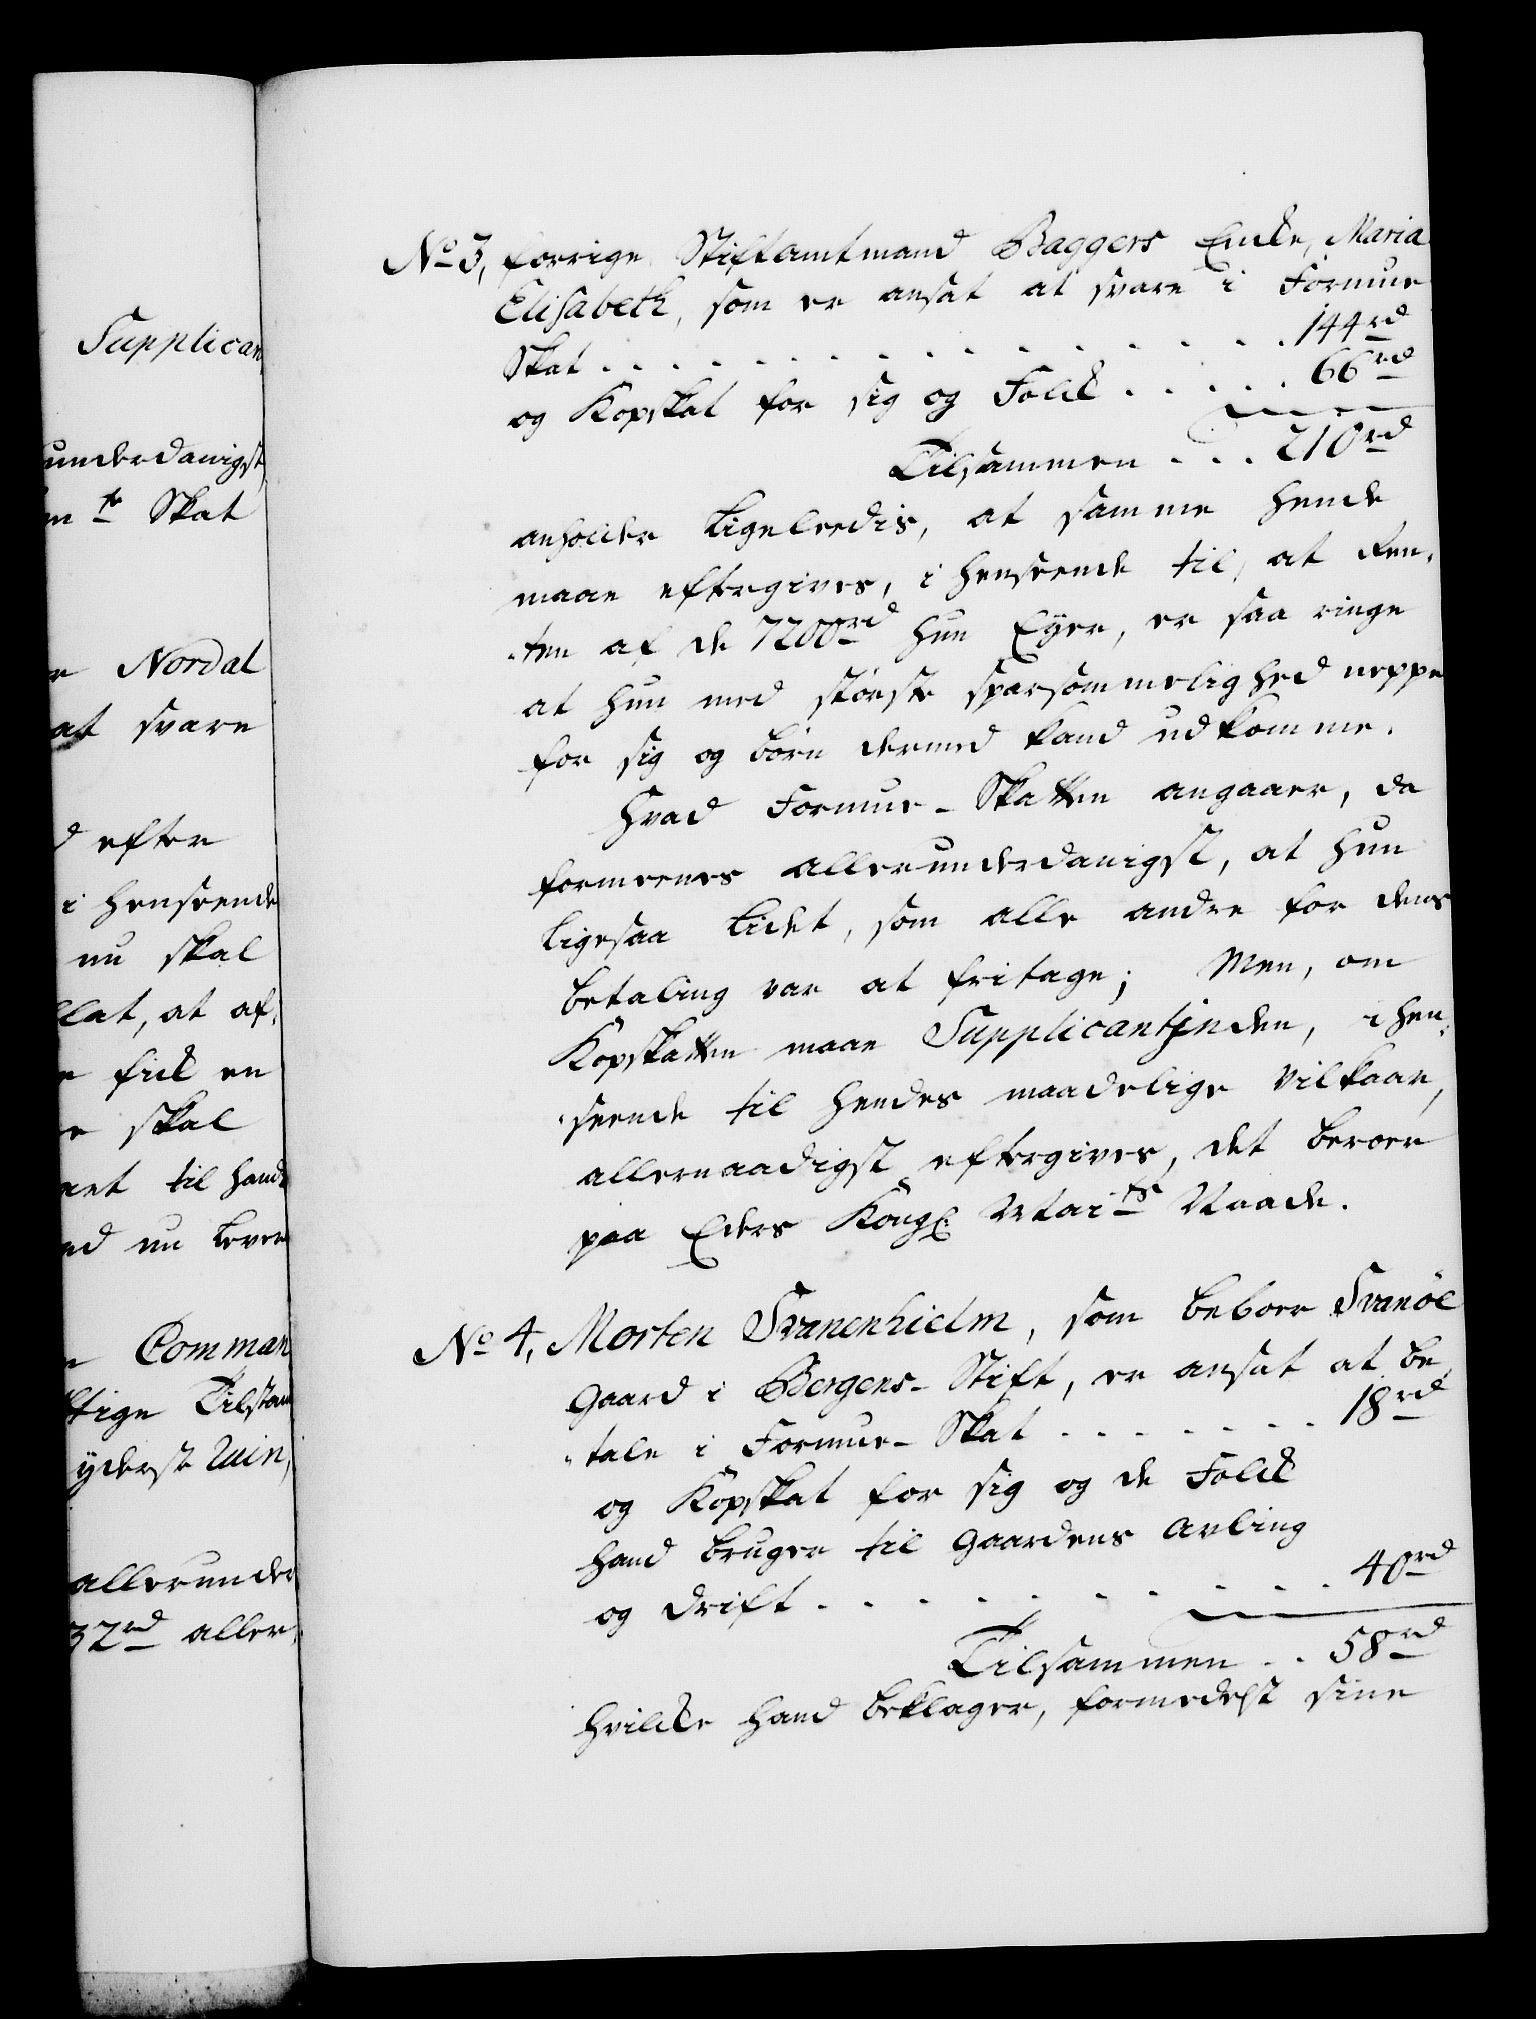 Supplican
underdanigst
Skat
Nordal
at svare
efter
i henseende
nu skal
at af
fick en
skal
til hand
nu lever
Comman
Tilstan
yderste Ruin,
allerunder
32rd aller
No 3, forrige Stiftamtmand Baggers Encke, Maria
Elisabeth, som er ansat at svare i Formue
Skat . . . . . . . . . . . . 144rd
og Kopskat for sig og Folck . . . . . 66rd
Tilsammen . . . 210rd
anholder ligeleedis, at samme hende
maae eftergives, i henseende til, at Ren-
ten af de 7200rd hun Eyer, er saa ringe
at hun med störste sparsommelighed neppe
for sig og börn dermed kand udkomme.
Hvad Formue-Skatten angaaer, da
formeenes allerunderdanigst, at hun
ligesaa lidet, som alle andre for dens
betaling var at fritage; Men, om
Kopskatten maae Supplicantinden, i hen-
seende til hendes maadelige Vilkaar,
allernaadigst eftergives, det beroer
paa Eders Kongl: Maits Naade.
No 4, Morten Svanenhielm, som beboer Svanöe
Gaard i Bergens-Stift, er ansat at be-
tale i Formue-Skat . . . . . . . 18rd
og Kopskat for sig og de Folck
hand bruger til Gaardens Avling
og Drift . . . . . . . . . 40rd
Tilsammen . . 58rd
hvilcke hand beklager, formedelst sine